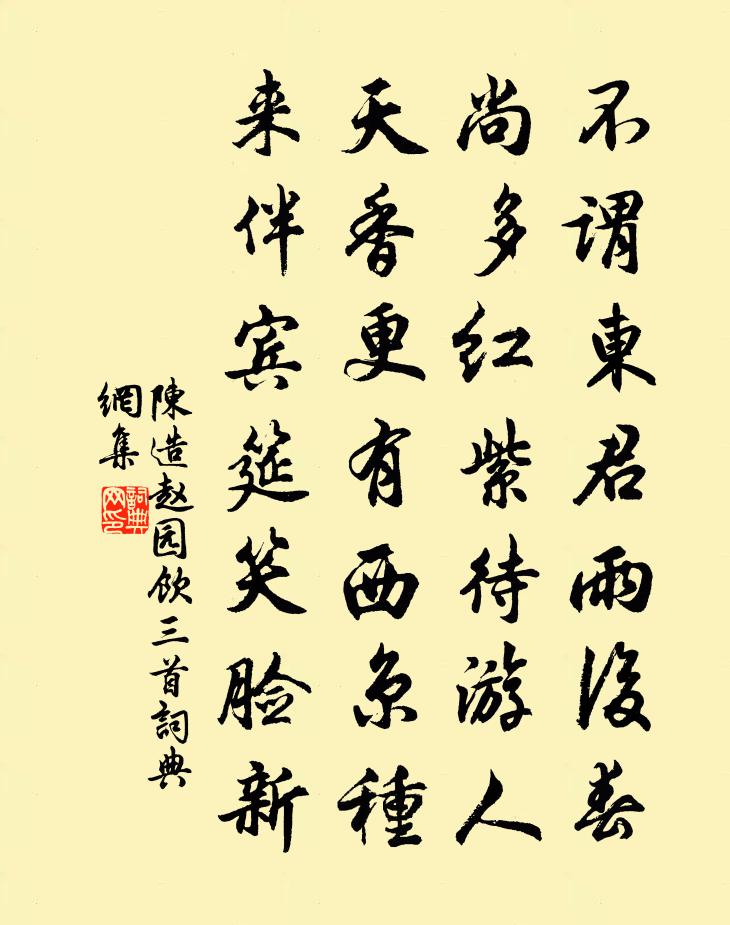 不谓東君雨後春
尚多红紫待游人
天香更有西京種
来伴宾筵笑脸新
陳造赵园饮三首詞典
網集
詞典网印